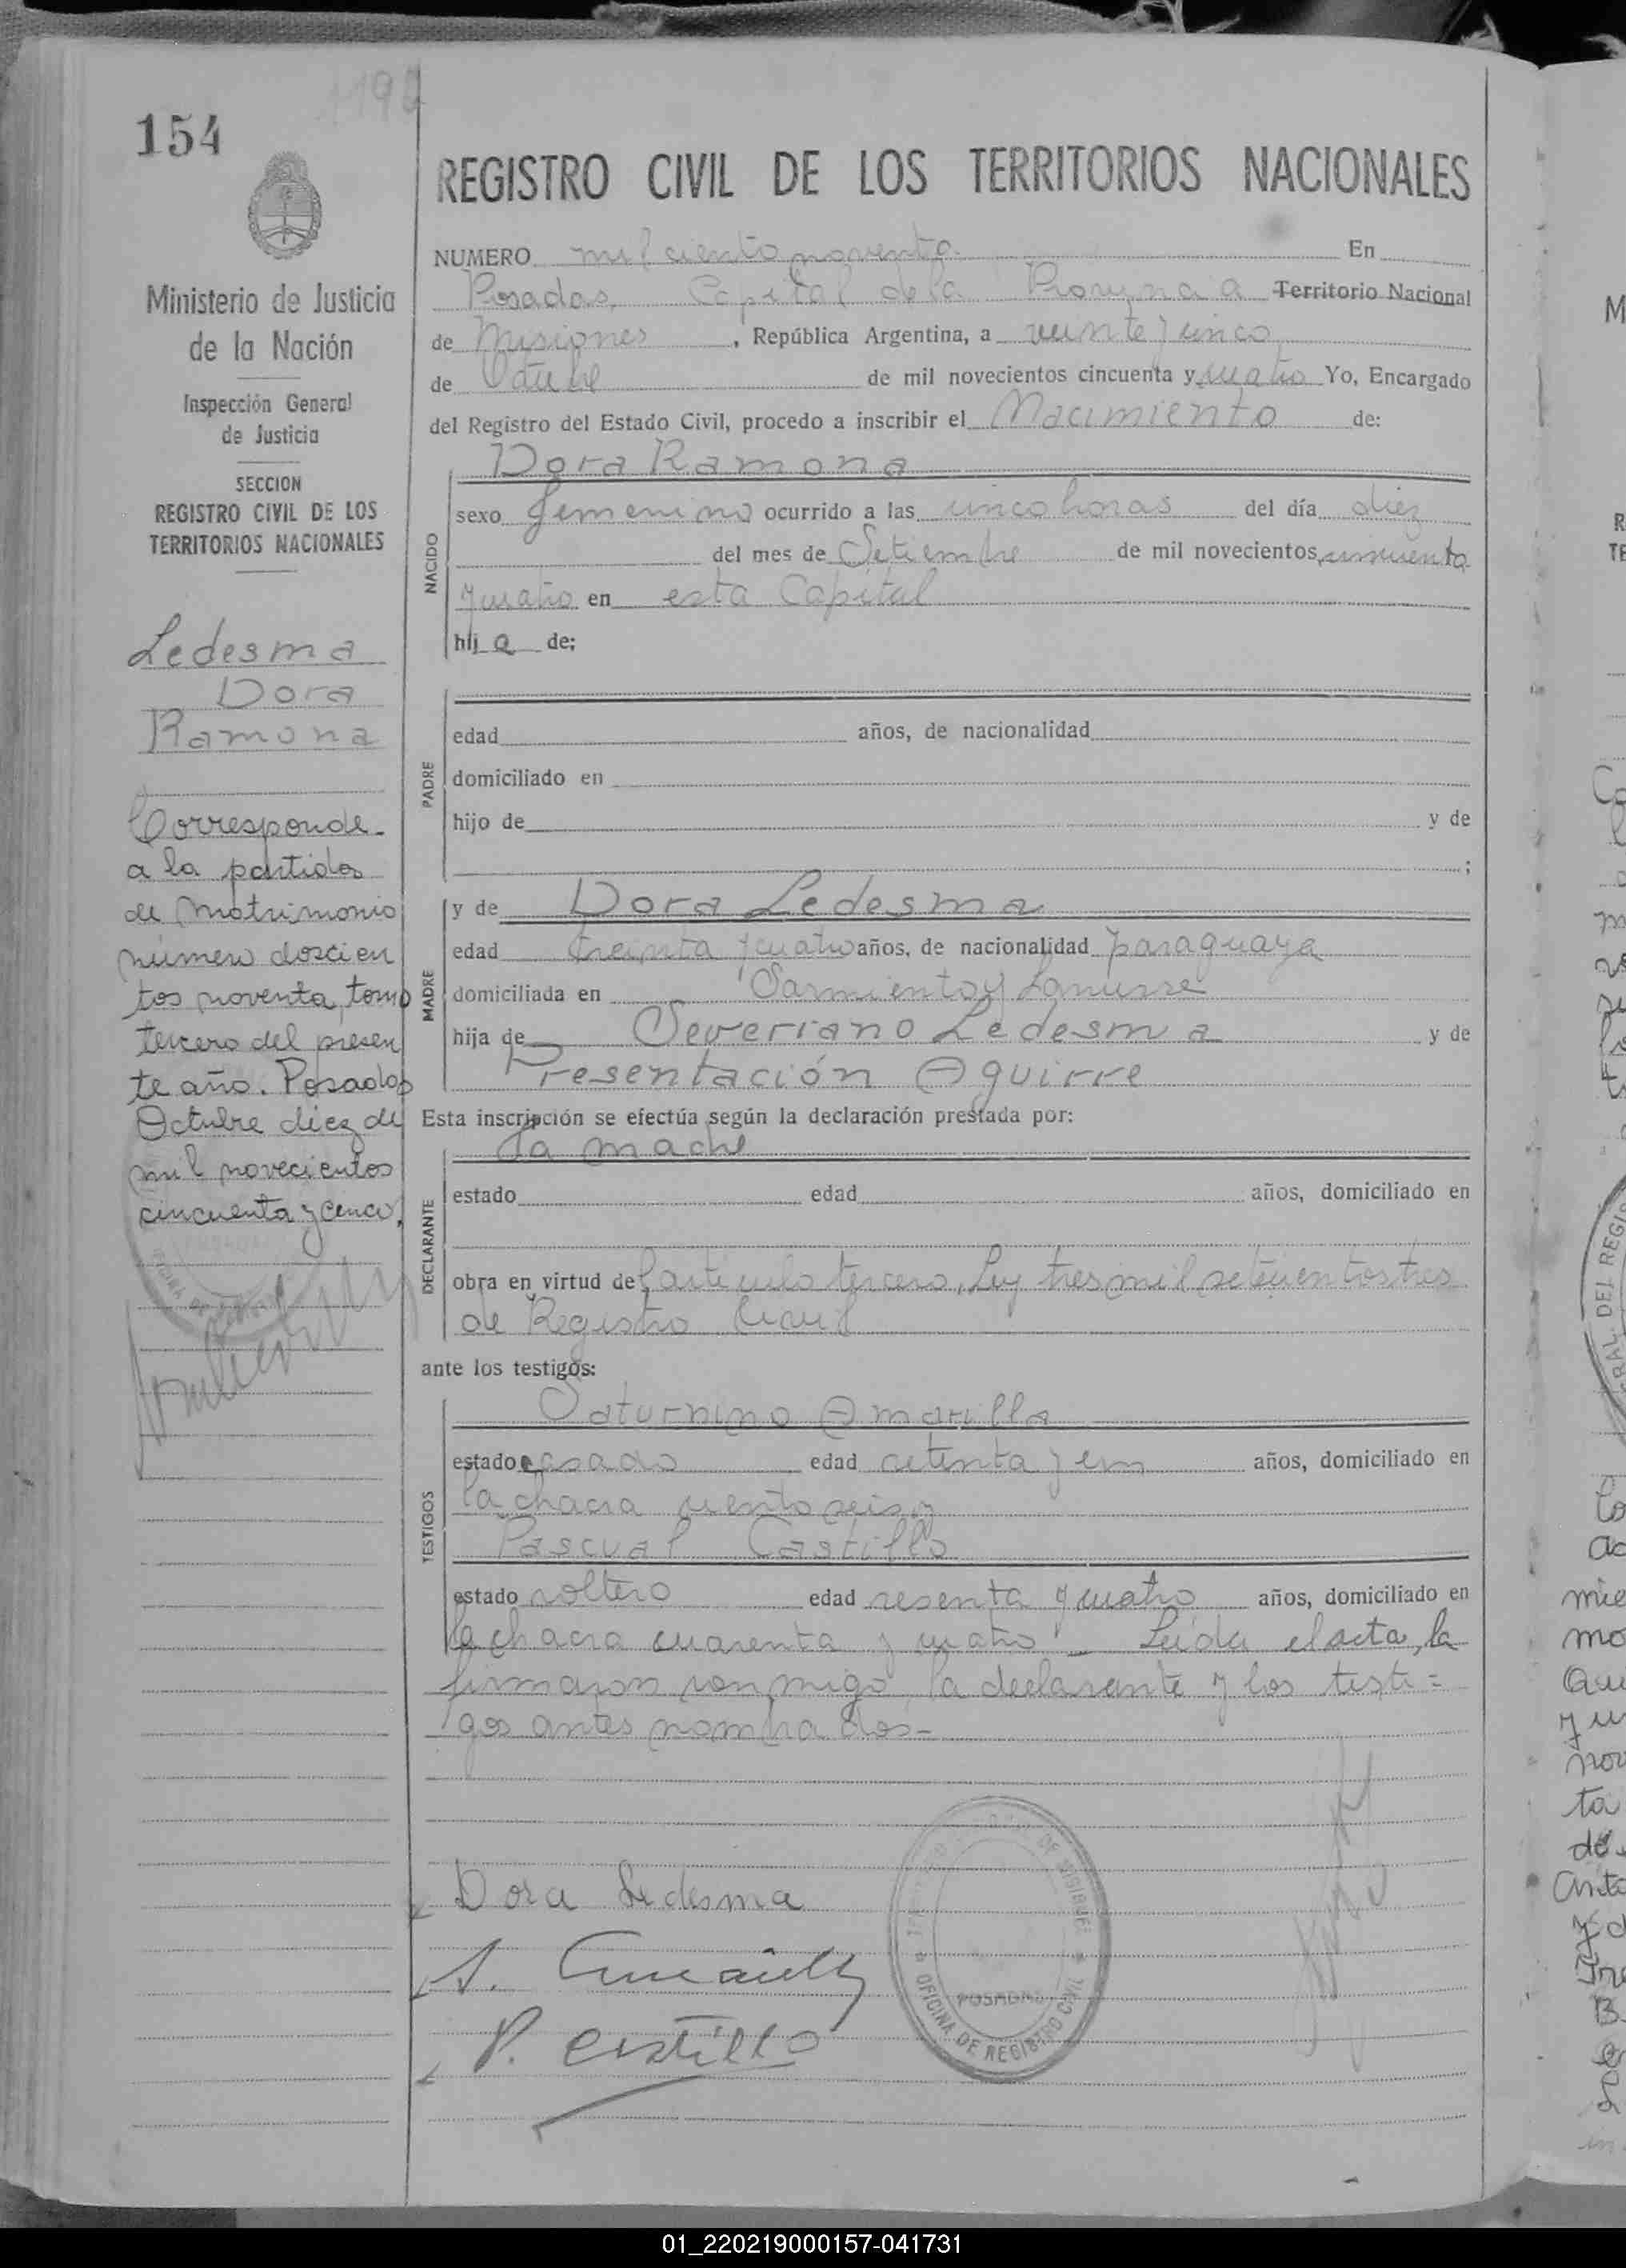 154
REGISTRO CIVIL DE LOS TERRITORIOS NACIONALES
Ministerio de Justicia
de la Nación
Inspección General
de Justicia
SECCION
REGISTRO CIVIL DE LOS
TERRITORIOS NACIONALES
Ledesma
Dora
Ramona
Corresponde
a la partida
de Matrimonio
número doscien
tos noventa, tomo
tercero del presen
te año. Posadas
Octubre diez de
mil novecientos
cincuenta y cinco,
NUMERO mil ciento noventa En
Posadas, Capital de la Provincia Territorio Nacional
de Misiones , República Argentina, a veinte y cinco
de Octubre de mil novecientos cincuenta y cuatro Yo, Encargado
del Registro del Estado Civil, procedo a inscribir el Nacimiento de:
NACIDO
Dora Ramona
sexo femenino ocurrido a las cinco horas del día diez
del mes de Setiembre de mil novecientos cincuenta
y cuatro en esta Capital
hij a de;
PADRE
edad años, de nacionalidad
domiciliado en
hijo de y de
;
MADRE
y de Dora Ledesma
edad treinta y cuatro años, de nacionalidad paraguaya
domiciliada en Sarmiento y Lanusse
hija de Severiano Ledesma y de
Presentación Aguirre
Esta inscripción se efectúa según la declaración prestada por:
DECLARANTE
la madre
estado edad años, domiciliado en
obra en virtud del artículo tercero, Ley tres mil setecientos tres
de Registro Civil
ante los testigos:
TESTIGOS
Saturnino Amarilla
estado casado edad setenta y años, domiciliado en
la chacra ciento seis y
Pascual Castillo
estado soltero edad sesenta y cuatro años, domiciliado en
la chacra cuarenta y cuatro - Leída el acta, la
firmaron conmigo la declarante y los testi=
gos antes nombrados=
Dora Ledesma
P. Castillo
OFICINA DE REGISTRO CIVIL
POSADAS
01_220219000157-041731